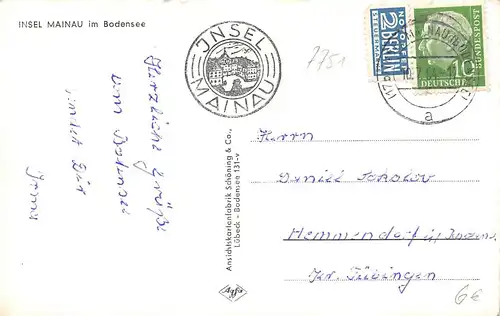 INSEL MAINAU im Bodensee
JNSEL
MAINAU
7751
NOTOPFER
2 BERLIN
STEUERMARKE
10
DEUTSCHE
BUNDESPOST
a
Herzliche Grüße
vom Bodensee
sendet Dir
Ansichtskartenfabrik Schöning & Co.,
Lübeck - Bodensee 131-v
Agfa
Herrn
Daniel Sokolov
Hemmendorf
Kr. Tübingen
6€